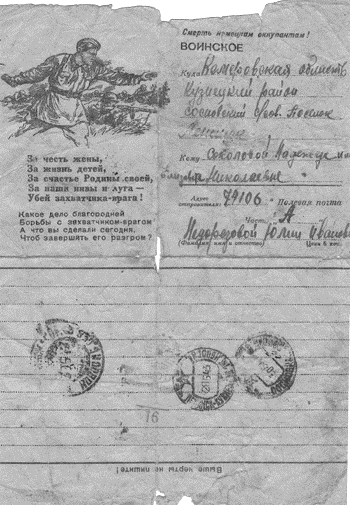 Смерть немецким оккупантам!
ВОИНСКОЕ
Куда Кемеровская область
Кузнецкий район
Сосновский Поселок
Кому Соколовой Надежде
Николаевне
Адрес отправителя: 74106 Полевая почта
Часть А
Недорезовой Юлии Ивановны
(Фамилия, имя и отчество) Цена 5 коп.
За честь жены,
За жизнь детей,
За счастье Родины своей,
За наши нивы и луга —
Убей захватчика-врага!
Какое дело благородней
Борьбы с захватчиком-врагом
А что вы сделали сегодня,
Чтоб завершить его разгром?
16
Выше черты не пишите!